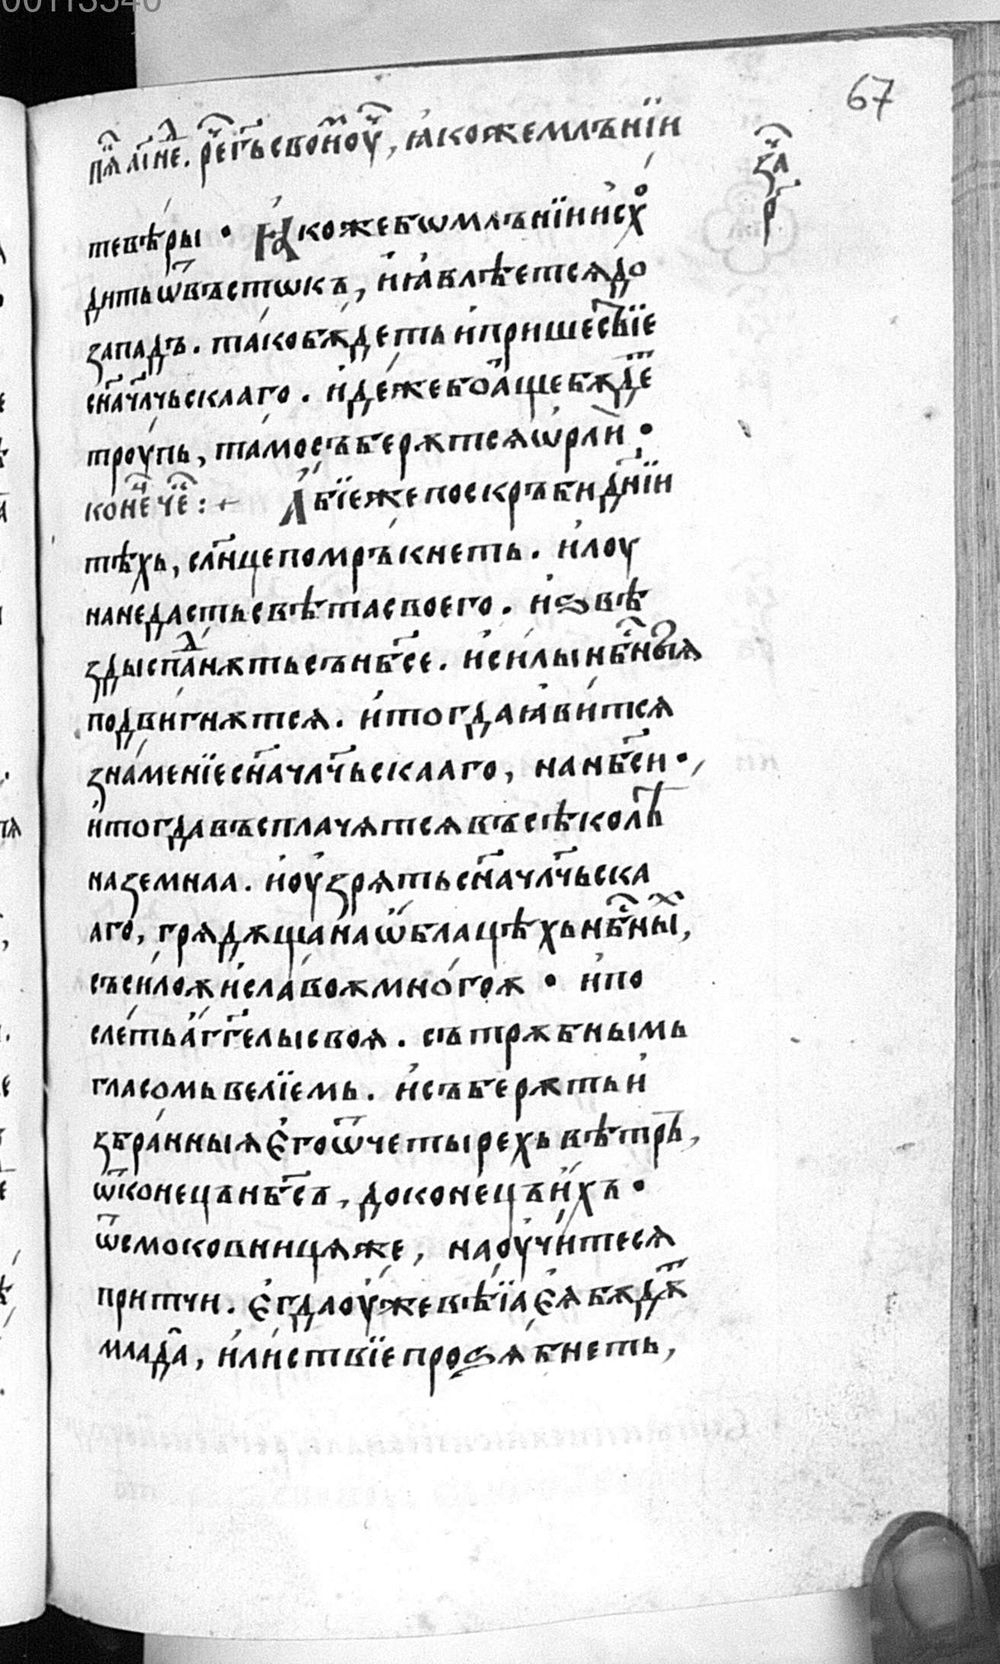 00113540
67
пѧ҃ аі҃ нед҇ѣ. ре҇ гь своимь оуч҇, ꙗкоже млънїи
за҇ р҃
те вѣры · Ꙗкоже бѡ млънїи исхо
дить ѿ въстѡкъ, и ꙗвлѣетсѧ до
западъ. тако бѫдеть и пришес҇твїе
сн҃а чл҃чьскааго. идеже бо аще бѫде҇
троупь, тамо съберѫтсѧ ѡрли ·
коне҇ч че҇ :+ Абїе же по скръби дн҃їи
тѣхь, сл҃нце помръкнеть. и лоу
на не дасть свѣта своего. и ѕвѣ
зды спадⷶнѫть сь нб҃се. и силы нб҇ныѧ
подвигнѫтсѧ. и тогда ꙗвитсѧ
знаменїе сн҃а чл҃чьскааго, на нб҃си ·
и тогда въсплачѧтсѧ въсѣ колѣ҇
на земнаа. и оузрѧть сн҃а чл҃чьска
аго, грѧдѫща на ѡблацѣхь нб҇ны҇х,
съ силоѫ и славоѫ многоѫ · и по
слеть агг҃елы своѧ. съ трѫбнымь
гласомь велїемь. и съберѫть и
збранныѧ его ѿ четырехь вѣтрь,
ѿ конець нб҃съ, до конець ихъ ·
ѿ смоковницѧ же, наоучитесѧ
притчи. егда оуже вѣїа еѧ бѫдѫ҇т
млада, и листвїе проѕѧбнеть,